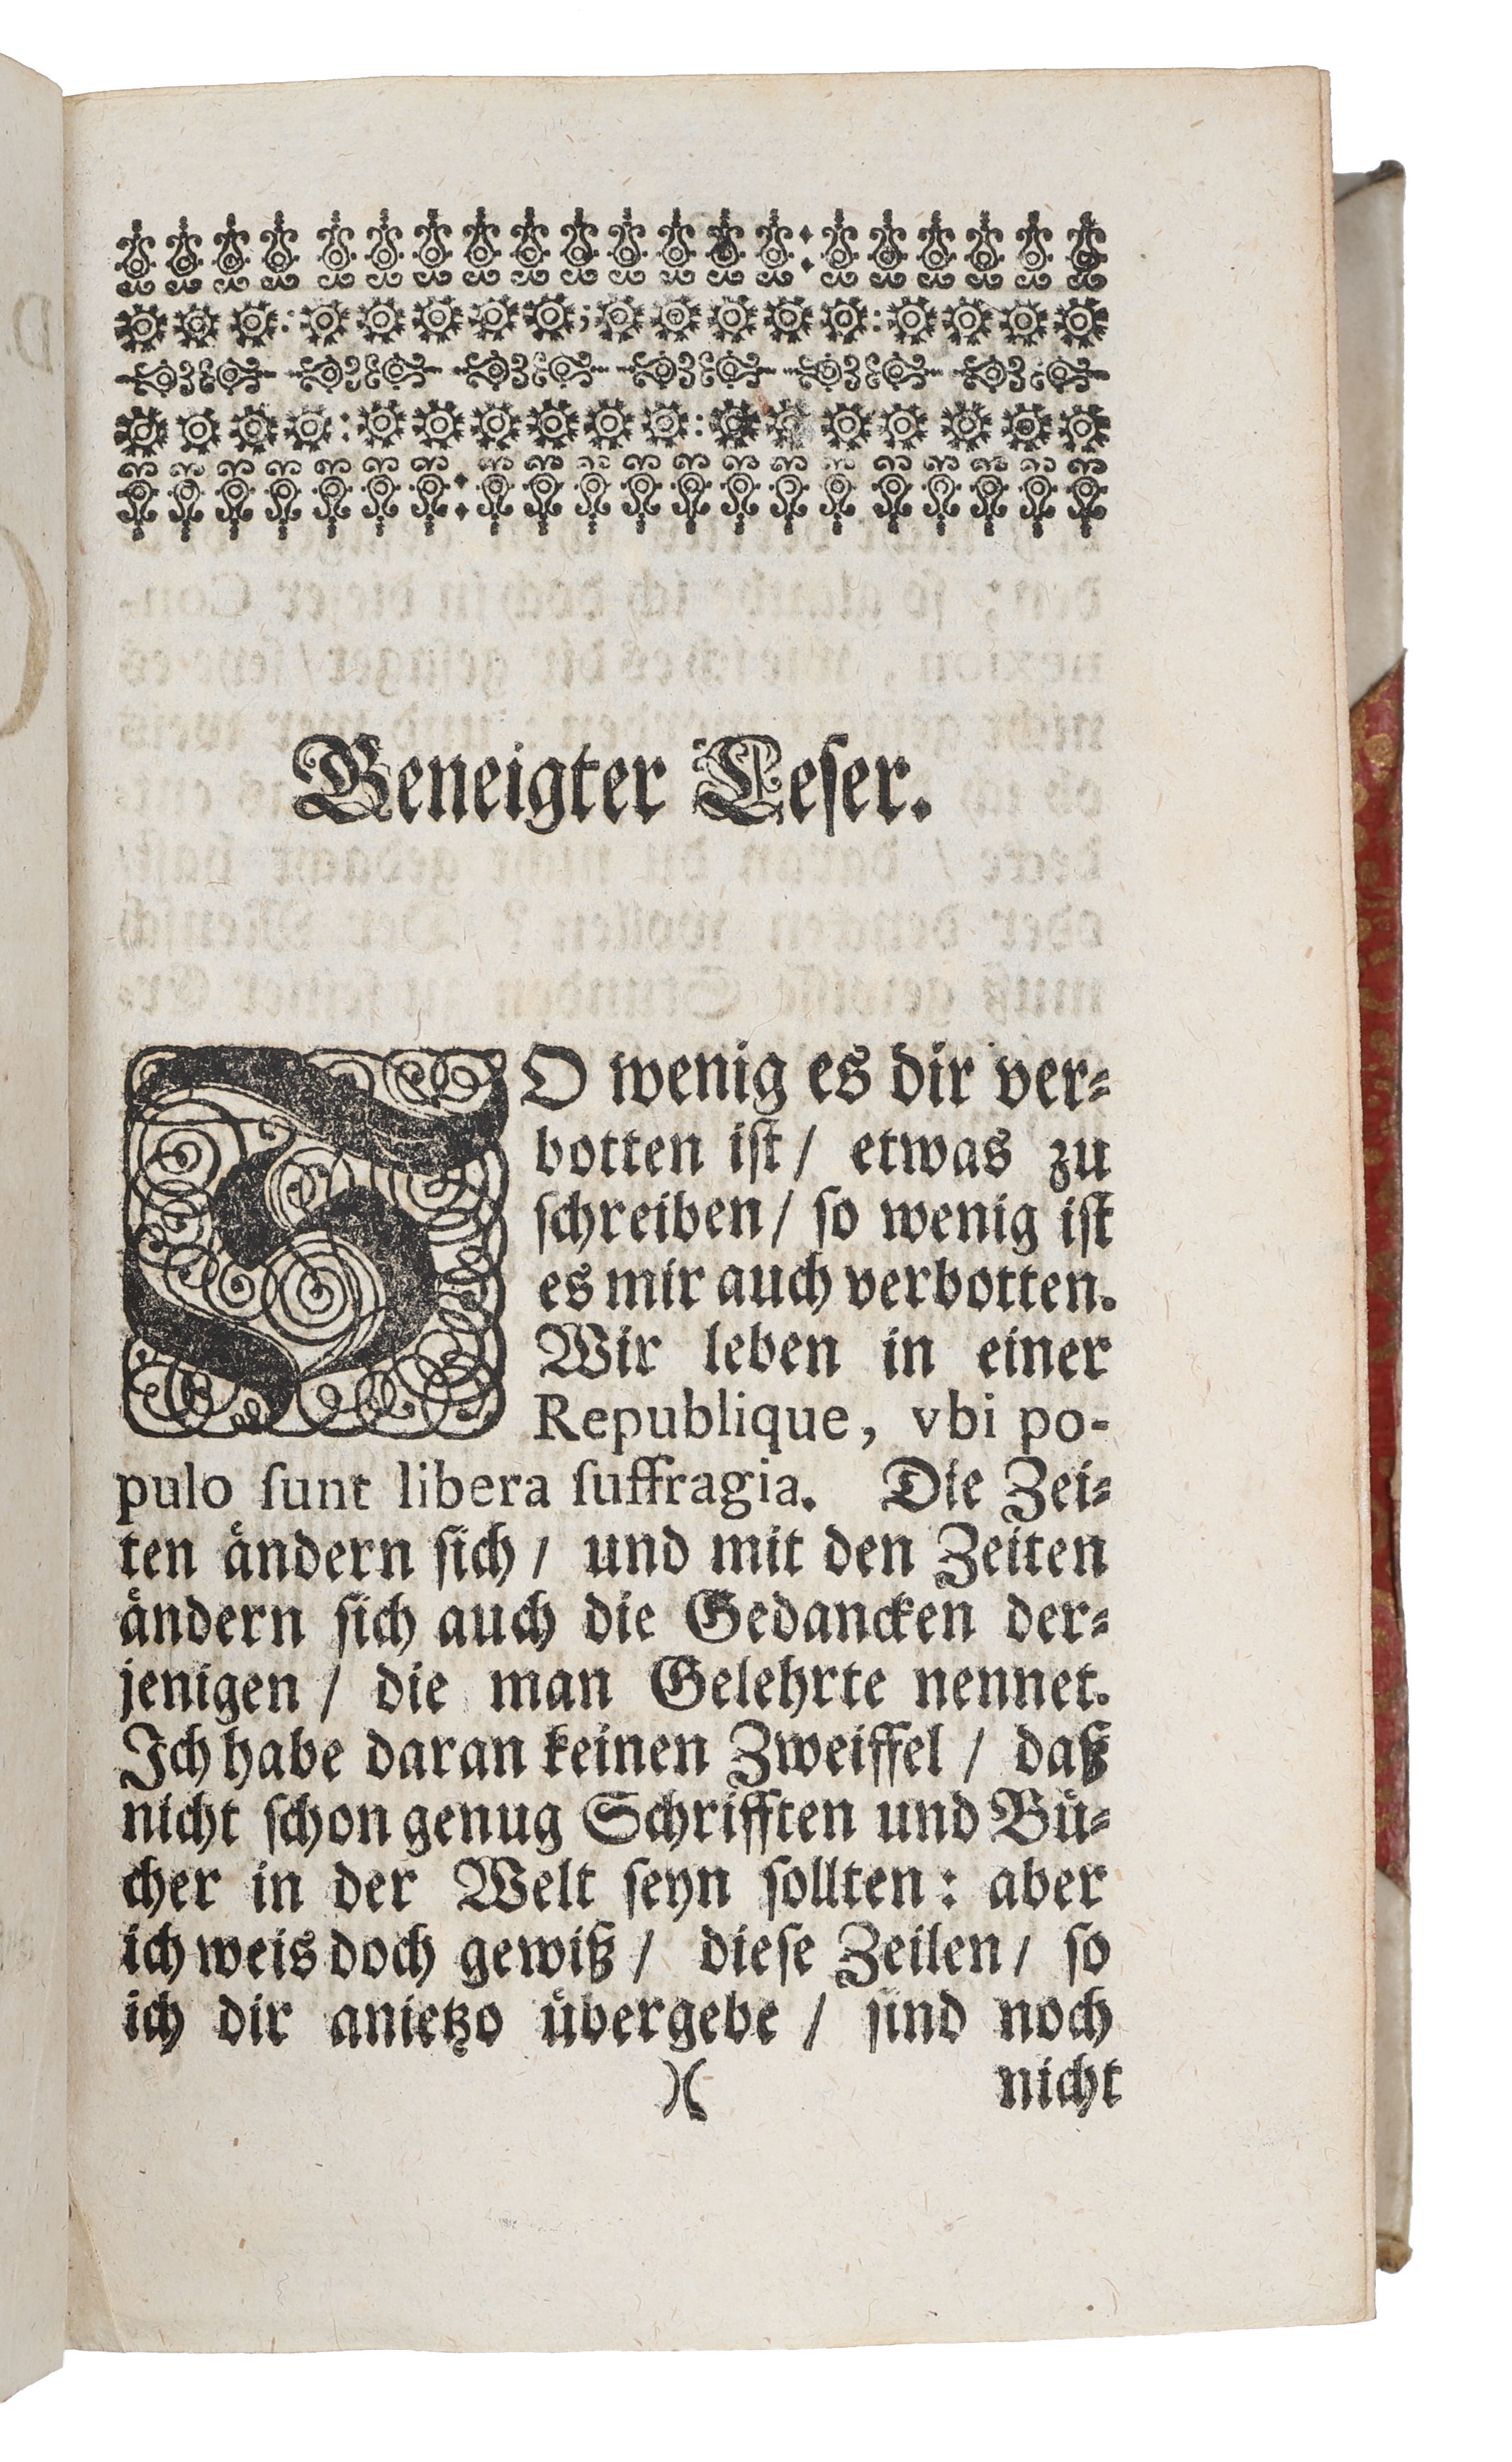 Geneigter Leser.
SO wenig es dir ver⸗
botten ist/ etwas zu
schreiben/ so wenig ist
es mir auch verbotten.
Wir leben in einer
Republique, vbi po-
pulo sunt libera suffragia. Die Zei⸗
ten aͤndern sich/ und mit den Zeiten
aͤndern sich auch die Gedancken der⸗
jenigen/ die man Gelehrte nennet.
Ich habe daran keinen Zweiffel/ daß
nicht schon genug Schrifften und Buͤ⸗
cher in der Welt seyn sollten: aber
ich weis doch gewiß/ diese Zeilen/ so
ich dir anietzo uͤbergebe/ sind noch
)( nicht